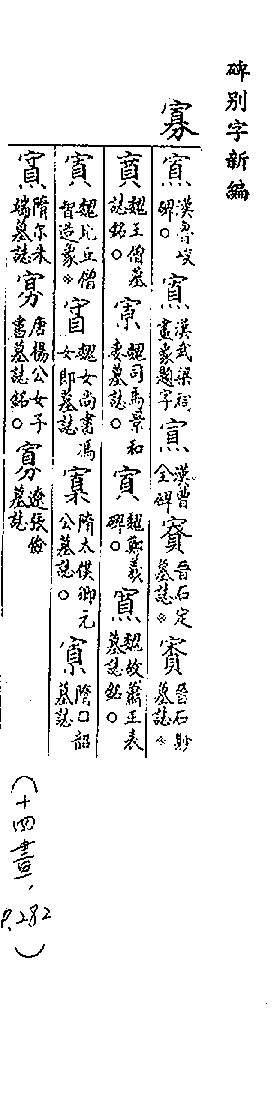 碑別字新編
寡
寡漢魯峻碑。寡漢武梁祠畫象題字寡漢曹全碑寡晉石定墓誌※寡晉石尠墓誌※
寡魏王僧墓誌銘。寡魏司馬景和妻墓誌。寡魏鄭羲碑。寡魏故蕭正表墓誌銘。
寡魏比丘僧智造象※寡魏女尚書馮女郎墓誌寡隋太僕卿元公墓誌。寡隋□□韶墓誌
寡隋尔朱端墓誌寡唐楊公女子書墓誌銘。寡遼張儉墓誌
(十四畫,
P.282)